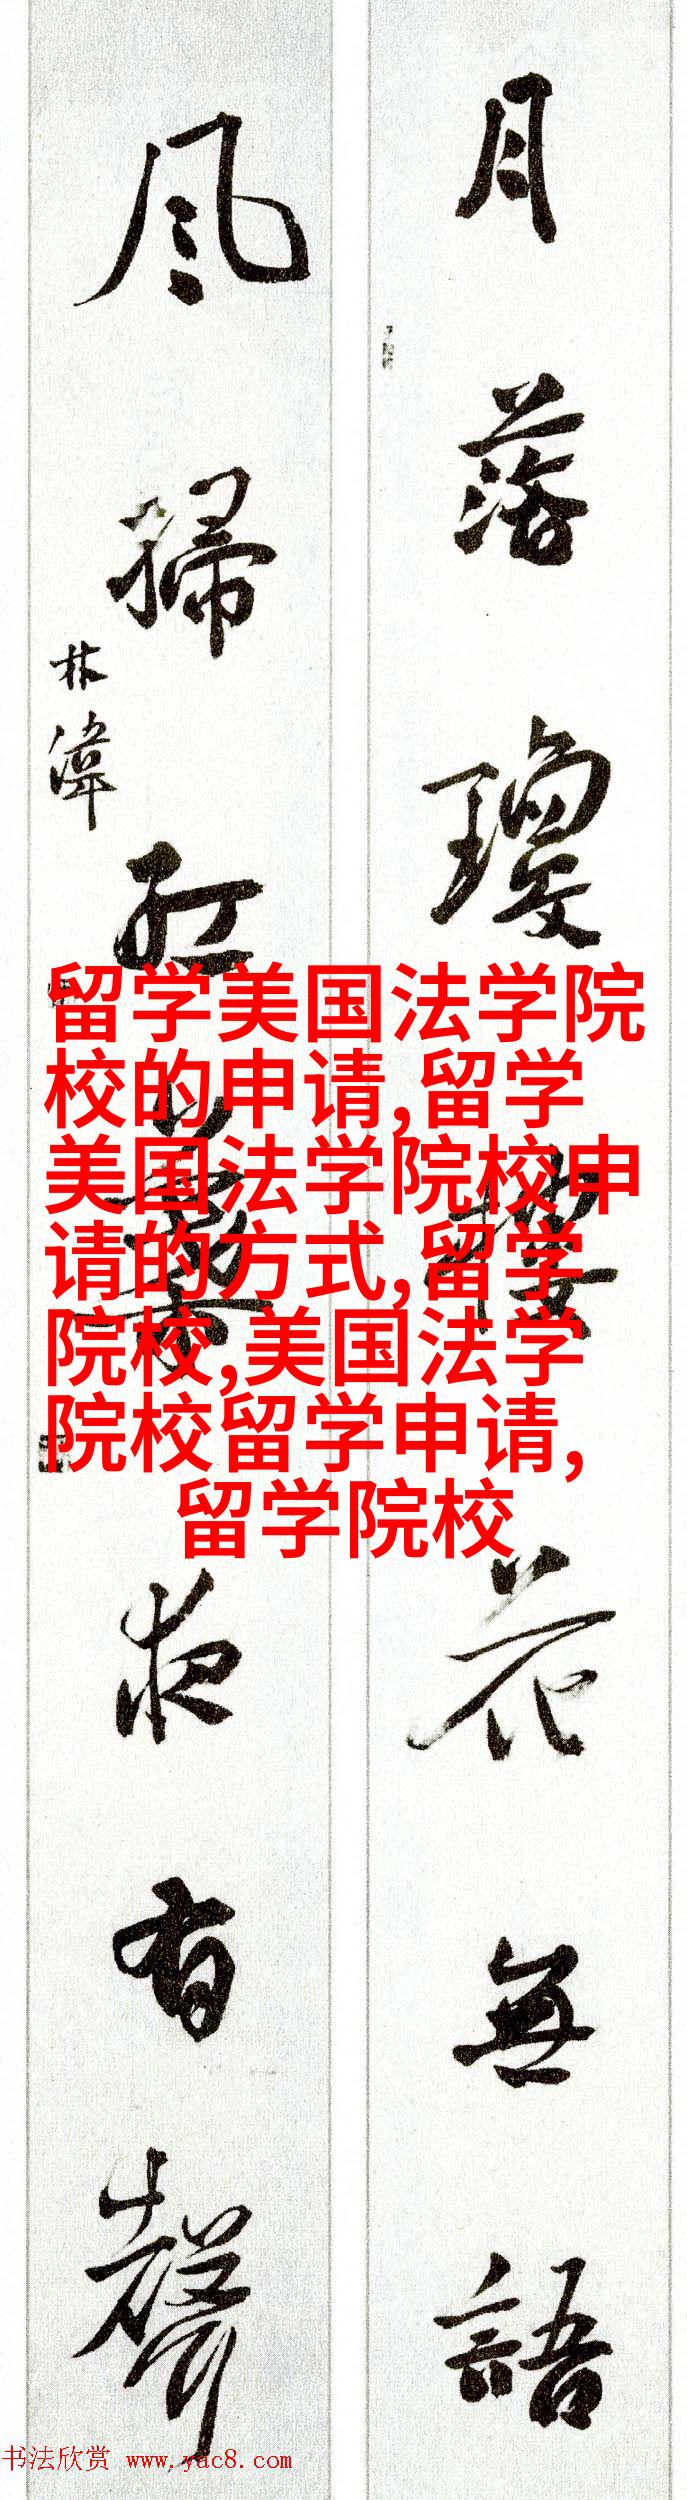 月落瓊樓花無語
風掃紅葉夜有聲
林濤
留学美国法学院
校的申请,留学
美国法学院校申
请的方式,留学
院校,美国法学
院校留学申请,
留学院校
书法欣赏 www.yac8.com